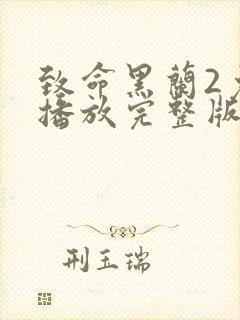 致命黑蘭2
播放完整版
刑玉瑞